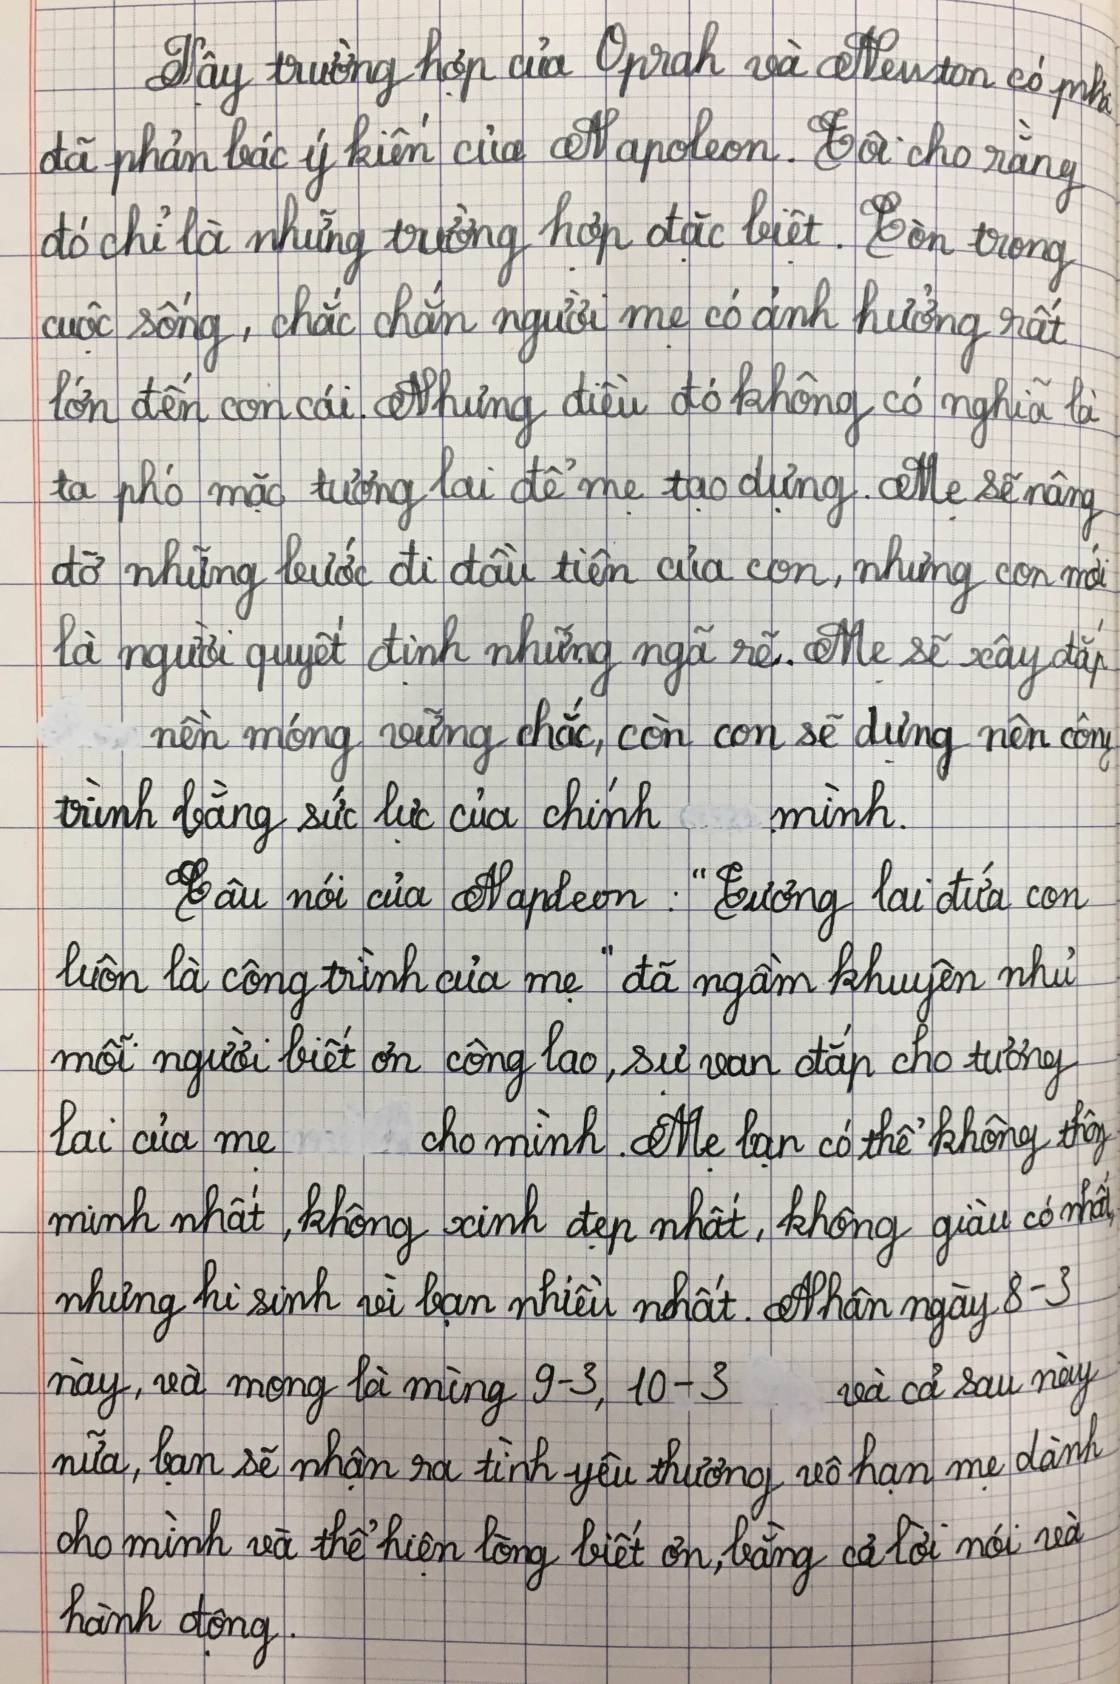 Vậy trường hợp của Oprah và Newton có phải
đã phản bác ý kiến của Napoleon. Tôi cho rằng
đó chỉ là những trường hợp đặc biệt. Còn trong
cuộc sống, chắc chắn người mẹ có ảnh hưởng rất
lớn đến con cái. Nhưng điều đó không có nghĩa là
ta phó mặc tương lai để mẹ tạo dựng. Mẹ sẽ nâng
đỡ những bước đi đầu tiên của con, nhưng con mới
là người quyết định những ngã rẽ. Mẹ sẽ xây đắp
nền móng vững chắc, còn con sẽ dựng nên công
trình bằng sức lực của chính mình.
Câu nói của Napoleon: "Tương lai đứa con
luôn là công trình của mẹ" đã ngầm khuyên nhủ
mỗi người biết ơn công lao, sự van đắp cho tương
lai của mẹ cho mình. Mẹ bạn có thể không thông
minh nhất, không xinh đẹp nhất, không giàu có nhất,
nhưng hi sinh vì bạn nhiều nhất. Nhân ngày 8-3
này, và mong là mùng 9-3, 10-3 và cả sau này
nữa, bạn sẽ nhận ra tình yêu thương vô hạn mẹ dành
cho mình và thể hiện lòng biết ơn, bằng cả lời nói và
hành động.